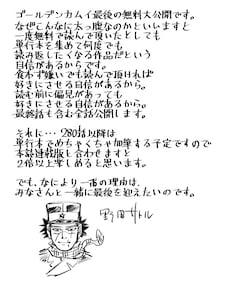 ゴールデンカムイ最後の無料大公開です。
なぜこんなに太っ腹なのかといいますと
一度無料で読んで頂いたとしても
単行本を集めて何度でも
読み返したくなる作品だという
自信があるからです。
食わず嫌いでも読んで頂ければ
好きにさせる自信があるから。
読む前に偏見があっても
好きにさせる自信があるから。
最終話も含む全話公開します。
それに…280話以降は
単行本でめちゃくちゃ加筆する予定ですので
本誌連載版も合わせますと
2倍以上楽しめると思います。
でも、なにより一番の理由は、
みなさんと一緒に最後を迎えたいのです。
野田サトル